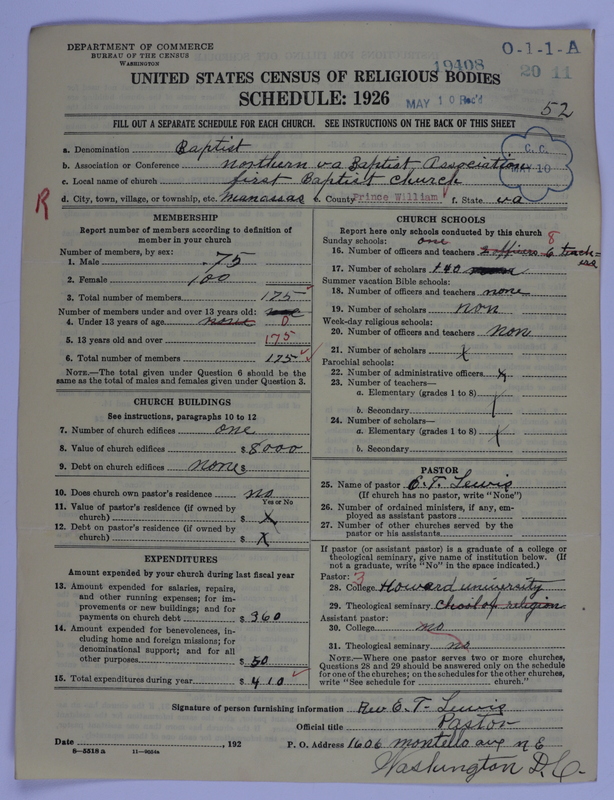 DEPARTMENT OF COMMERCE
BUREAU OF THE CENSUS
WASHINGTON
O-1-1-A
19408
20 11
UNITED STATES CENSUS OF RELIGIOUS BODIES
SCHEDULE: 1926
MAY 10 Rec'd
52
FILL OUT A SEPARATE SCHEDULE FOR EACH CHURCH. SEE INSTRUCTIONS ON THE BACK OF THIS SHEET
a. Denomination Baptist
C. C.
MAY 10
b. Association or Conference northern va Baptist Association
c. Local name of church first Baptist church
R
d. City, town, village, or township, etc. manassas e. County Prince William f. State va
MEMBERSHIP
Report number of members according to definition of
member in your church
Number of members, by sex:
1. Male 75
2. Female 100
3. Total number of members 175
Number of members under and over 13 years old:
4. Under 13 years of age none 0
5. 13 years old and over 175
6. Total number of members 175
NOTE.—The total given under Question 6 should be
same as the total of males and females given under Question 3.
CHURCH BUILDINGS
See instructions, paragraphs 10 to 12
7. Number of church edifices one
8. Value of church edifices $ 8000
9. Debt on church edifices none $
10. Does church own pastor's residence no
Yes or No
11. Value of pastor's residence (if owned by
church) $ X
12. Debt on pastor's residence (if owned by
church) $ X
EXPENDITURES
Amount expended by your church during last fiscal year
13. Amount expended for salaries, repairs,
and other running expenses; for im-
provements or new buildings; and for
payments on church debt $ 360
14. Amount expended for benevolences, in-
cluding home and foreign missions; for
denominational support; and for all
other purposes $ 50
15. Total expenditures during year $ 410
CHURCH SCHOOLS
Report here only schools conducted by this church
Sunday schools: one 8
16. Number of officers and teachers 2 officers 6 teach=
ers
17. Number of scholars 140
Summer vacation Bible schools:
18. Number of officers and teachers none
19. Number of scholars non
Week-day religious schools:
20. Number of officers and teachers non
21. Number of scholars X
Parochial schools:
22. Number of administrative officers X
23. Number of teachers—
a. Elementary (grades 1 to 8)
b. Secondary
24. Number of scholars—
a. Elementary (grades 1 to 8)
b. Secondary
PASTOR
25. Name of pastor E. T. Lewis
(If church has no pastor, write "None")
26. Number of ordained ministers, if any, em-
ployed as assistant pastors
27. Number of other churches served by the
pastor or his assistants
If pastor (or assistant pastor) is a graduate of a college or
theological seminary, give name of institution below. (If
not a graduate, write "No" in the space indicated.)
Pastor: 3
28. College Howard university
29. Theological seminary chool of religion
Assistant pastor:
30. College no
31. Theological seminary no
NOTE.—Where one pastor serves two or more churches,
Questions 28 and 29 should be answered only on the schedule
for one of the churches; on the schedules for the other churches,
write "See schedule for church."
Signature of person furnishing information Rev E. T. Lewis
Official title Pastor
Date , 192 P. O. Address 1606 montello ave n E
8—5518 a 11—9654a
Washington D.C.